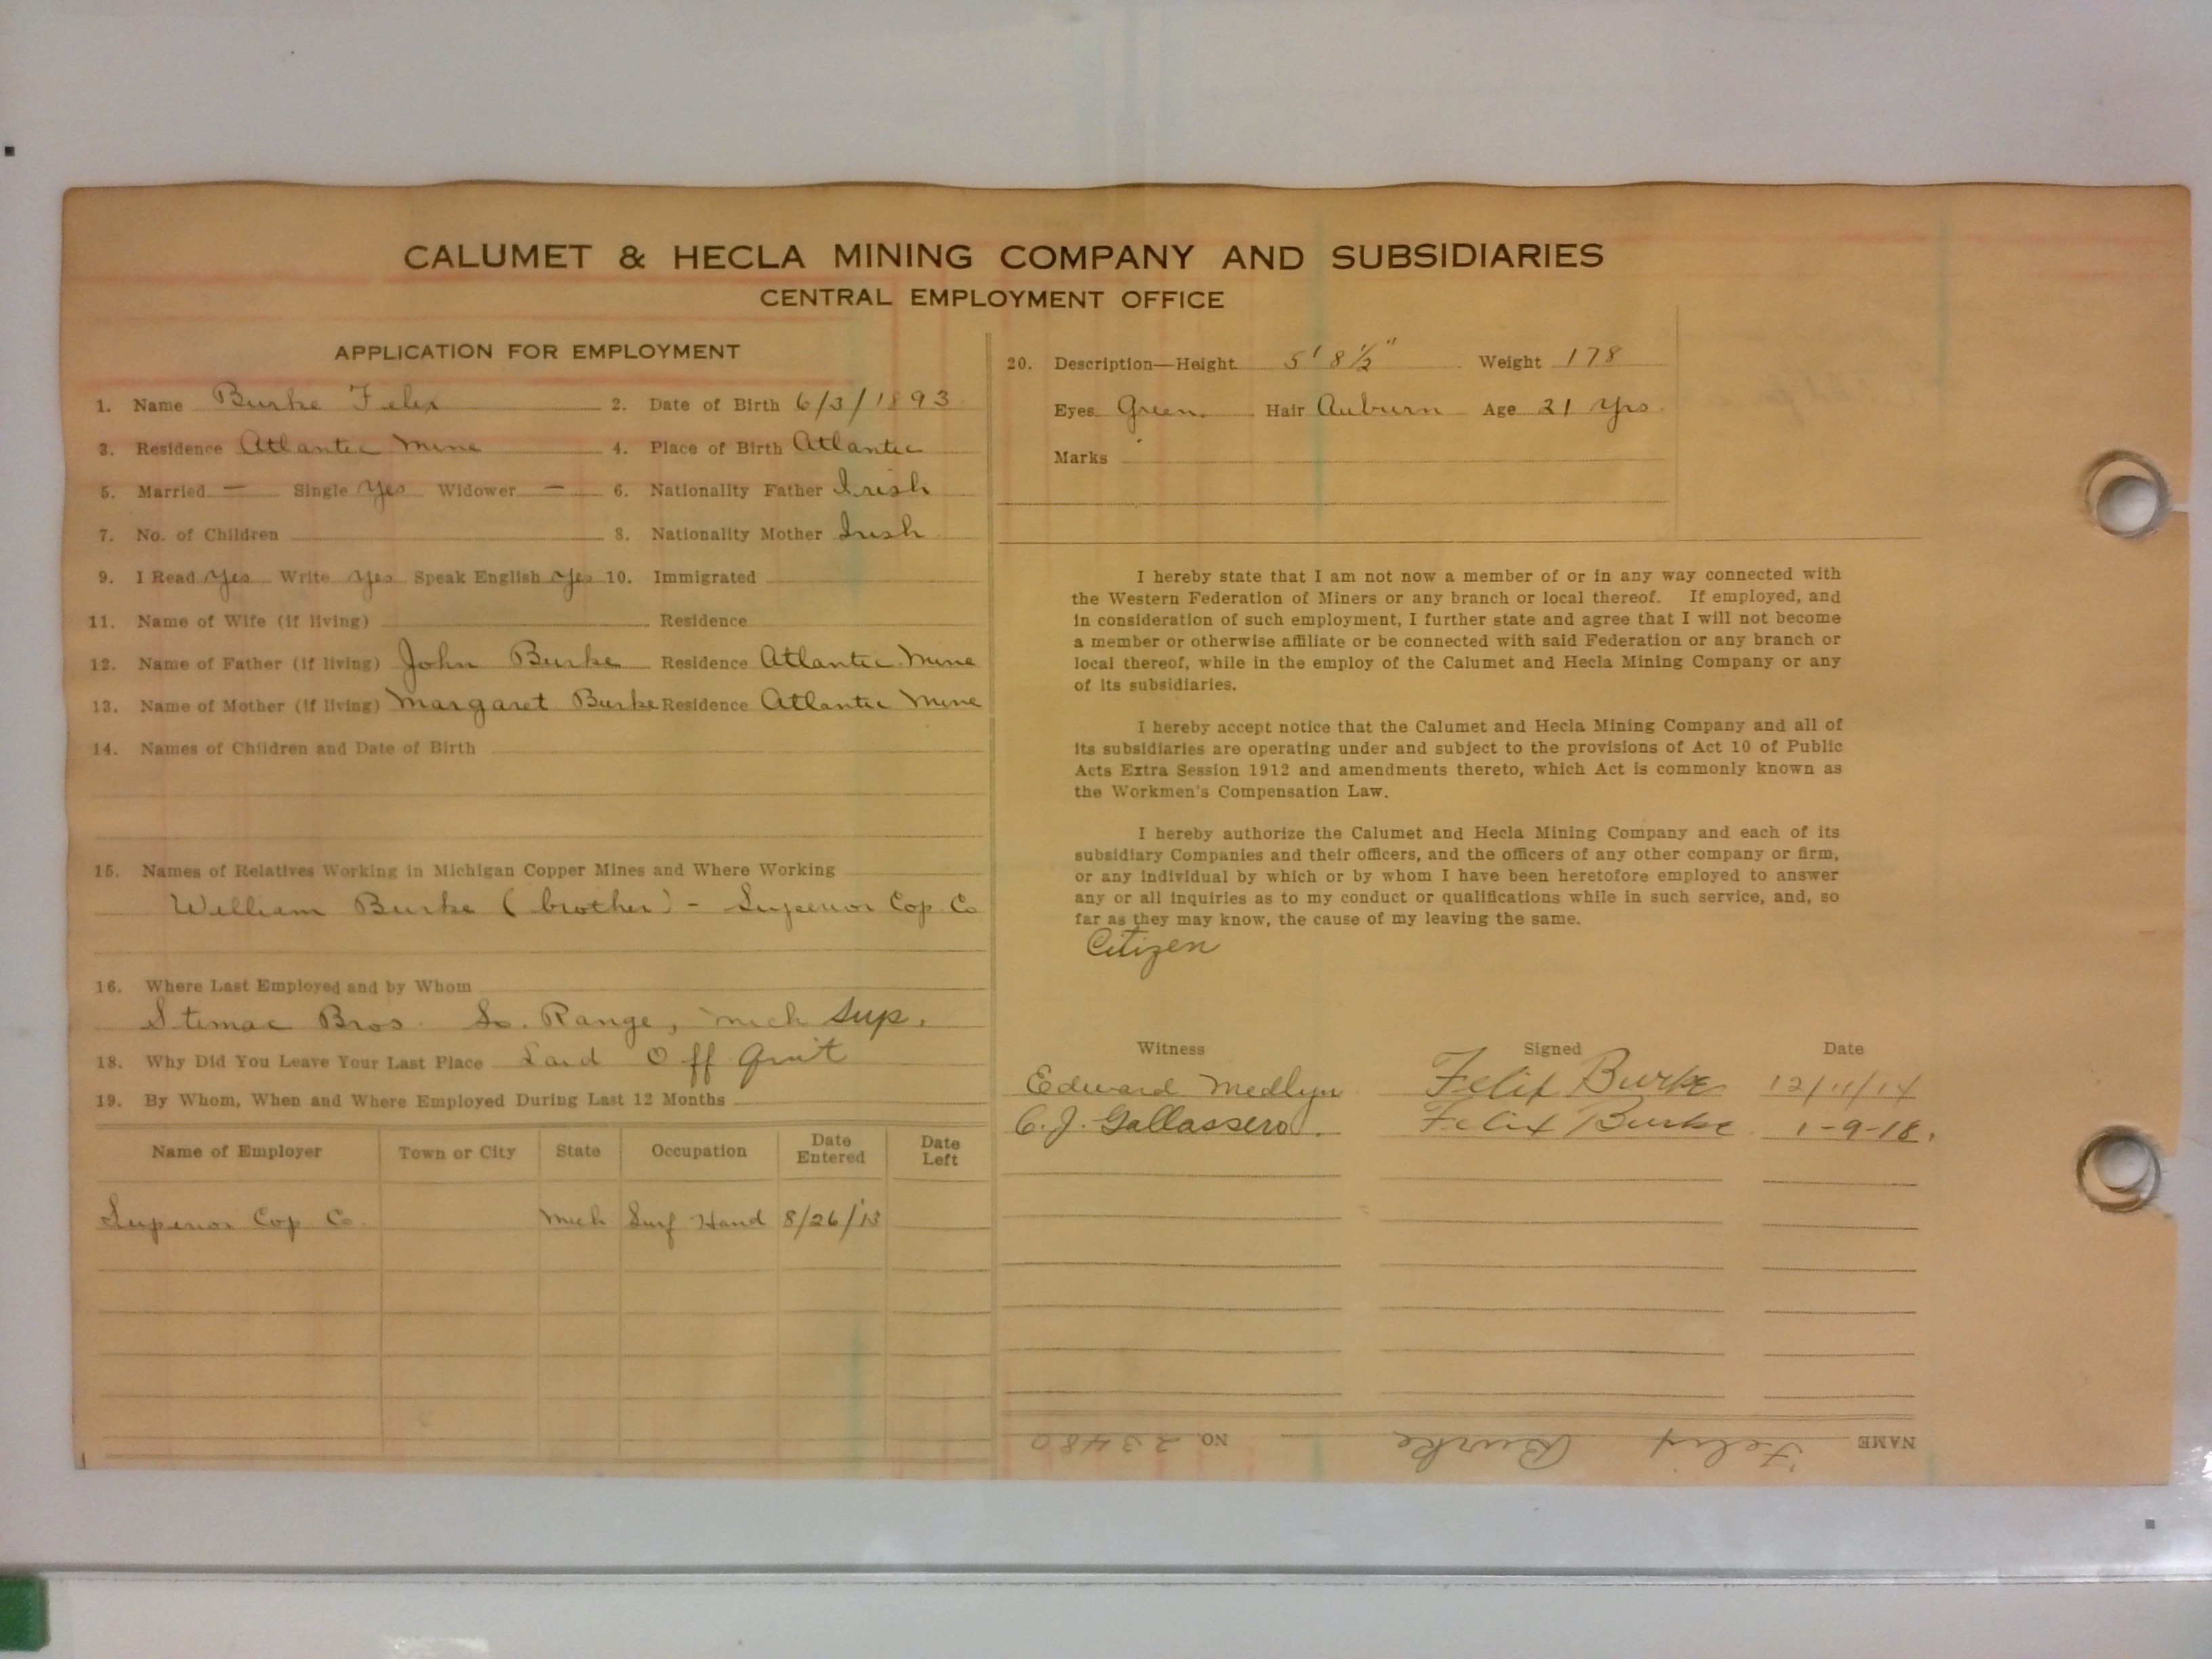 CALUMET & HECLA MINING COMPANY AND SUBSIDIARIES
CENTRAL EMPLOYMENT OFFICE
APPLICATION FOR EMPLOYMENT
1. Name Burke Felix 2. Date of Birth 6/3/1893
3. Residence Atlantic Mine 4. Place of Birth Atlantic
5. Married — Single Yes Widower — 6. Nationality Father Irish
7. No. of Children 8. Nationality Mother Irish
9. I Read Yes Write Yes Speak English Yes 10. Immigrated
11. Name of Wife (if living) Residence
12. Name of Father (if living) John Burke Residence Atlantic Mine
13. Name of Mother (if living) Margaret Burke Residence Atlantic Mine
14. Names of Children and Date of Birth
15. Names of Relatives Working in Michigan Copper Mines and Where Working
William Burke (brother) - Superior Cop Co
16. Where Last Employed and by Whom
Stimac Bros. So. Range, Mich Sup.
18. Why Did You Leave Your Last Place Laid Off Quit
19. By Whom, When and Where Employed During Last 12 Months
Name of Employer Town or City State Occupation Date Entered Date Left
Superior Cop Co. Mich Surf Hand 8/26/13
20. Description—Height 5' 8½" Weight 178
Eyes Green Hair Auburn Age 21 yrs.
Marks
I hereby state that I am not now a member of or in any way connected with
the Western Federation of Miners or any branch or local thereof. If employed, and
in consideration of such employment, I further state and agree that I will not become
a member or otherwise affiliate or be connected with said Federation or any branch or
local thereof, while in the employ of the Calumet and Hecla Mining Company or any
of its subsidiaries.
I hereby accept notice that the Calumet and Hecla Mining Company and all of
its subsidiaries are operating under and subject to the provisions of Act 10 of Public
Acts Extra Session 1912 and amendments thereto, which Act is commonly known as
the Workmen's Compensation Law.
I hereby authorize the Calumet and Hecla Mining Company and each of its
subsidiary Companies and their officers, and the officers of any other company or firm,
or any individual by which or by whom I have been heretofore employed to answer
any or all inquiries as to my conduct or qualifications while in such service, and, so
far as they may know, the cause of my leaving the same.
Citizen
Witness Signed Date
Edward Medlyn Felix Burke 12/11/14
C. J. Gallassero. Felix Burke 1-9-18.
NAME Felix Burke NO. 23480